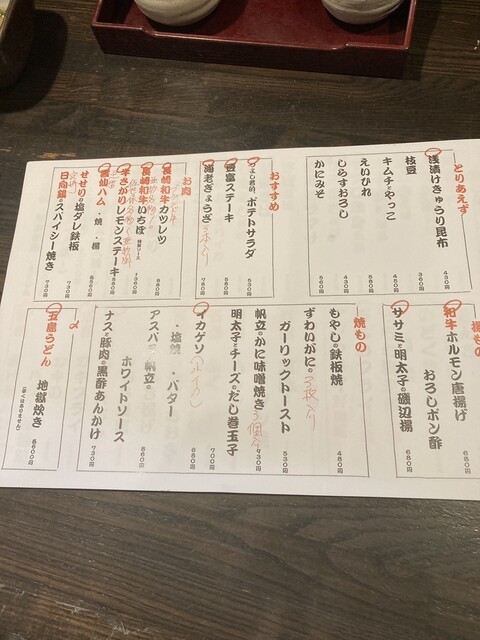 とりあえず
浅漬けきゅうり昆布 430円
枝豆 360円
キムチとやっこ 450円
えいひれ
しらすおろし
かにみそ 560円
おすすめ
つよし君の ポテトサラダ 530円
豊富ステーキ 580円
海老ぎょうざ 780円
お肉
長崎和牛カツレツ 980円
長崎和牛いちぼ
牛さがりレモンステーキ 880円
雲仙ハム ・焼 ・揚
せせりの塩ダレ鉄板 730円
日向鶏のスパイシー焼き 730円
揚もの
和牛ホルモン唐揚げ
おろしポン酢 680円
ササミと明太子の磯辺揚 680円
焼もの
もやしの鉄板焼 480円
ずわいがに
ガーリックトースト 530円
帆立のかに味噌焼き 930円
明太子とチーズのだし巻玉子 700円
イカゲソ
・塩焼 ・バター 660円
アスパラと帆立の
ホワイトソース 860円
ナスと豚肉の黒酢あんかけ 730円
〆
五島うどん 地獄炊き 660円